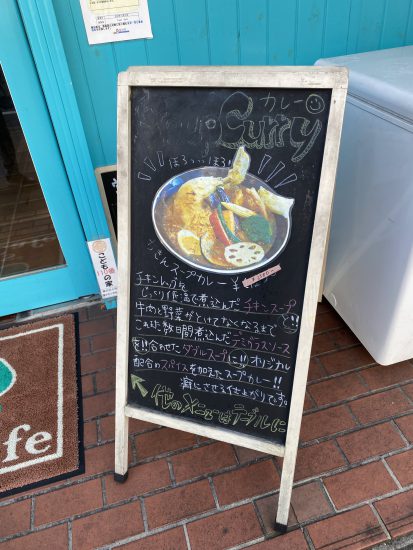 カレー
Curry
ほろっ…ほろ!
チキンスープカレー ¥
チキンレッグを
じっくり低温で煮込んだチキンスープ
牛肉と野菜がとけてなくなるまで
これまた数日間煮込んだデミグラスソース
合わせたダブルスープに!! オリジナル
配合のスパイスを加えたスープカレー!!
癖にさせる仕上がりです。
他のメニューはテーブルに
こども
110番
の家
fe